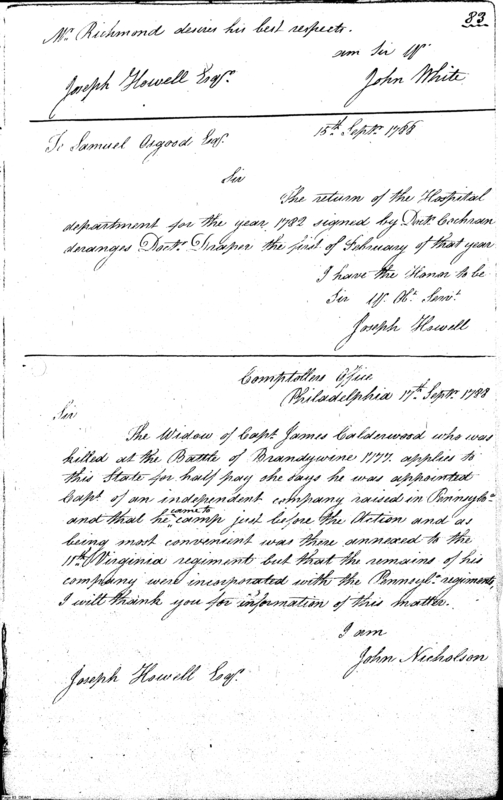 83
Mr. Richmond desires his best respects.
am Sir Yr.
Joseph Howell Esqr. John White
To Samuel Osgood Esqr. 15th Septr. 1788
Sir
The return of the Hospital
department for the year 1782 signed by Doctr. Cochran
deranges Doctr. Draper the first of February of that year
I have the Honor to be
Sir Yr. Ob.t Servt.
Joseph Howell
Comptollers Office
Philadelphia 17th Septr. 1788
Sir
The Widow of Capt. James Calderwood who was
killed at the Battle of Brandywine 1777. applies to
this State for half pay one days he was appointed
Capt. of an independent company raised in Pennsylva.
and that he came to camp just before the Action and as
being most convenient was there annexed to the
11th Virginia regiment but that the remains of his
company were incorporated with the Pennsyla. regiments,
I will thank you for information of this matter.
I am
John Nicholson
Joseph Howell Esqr.